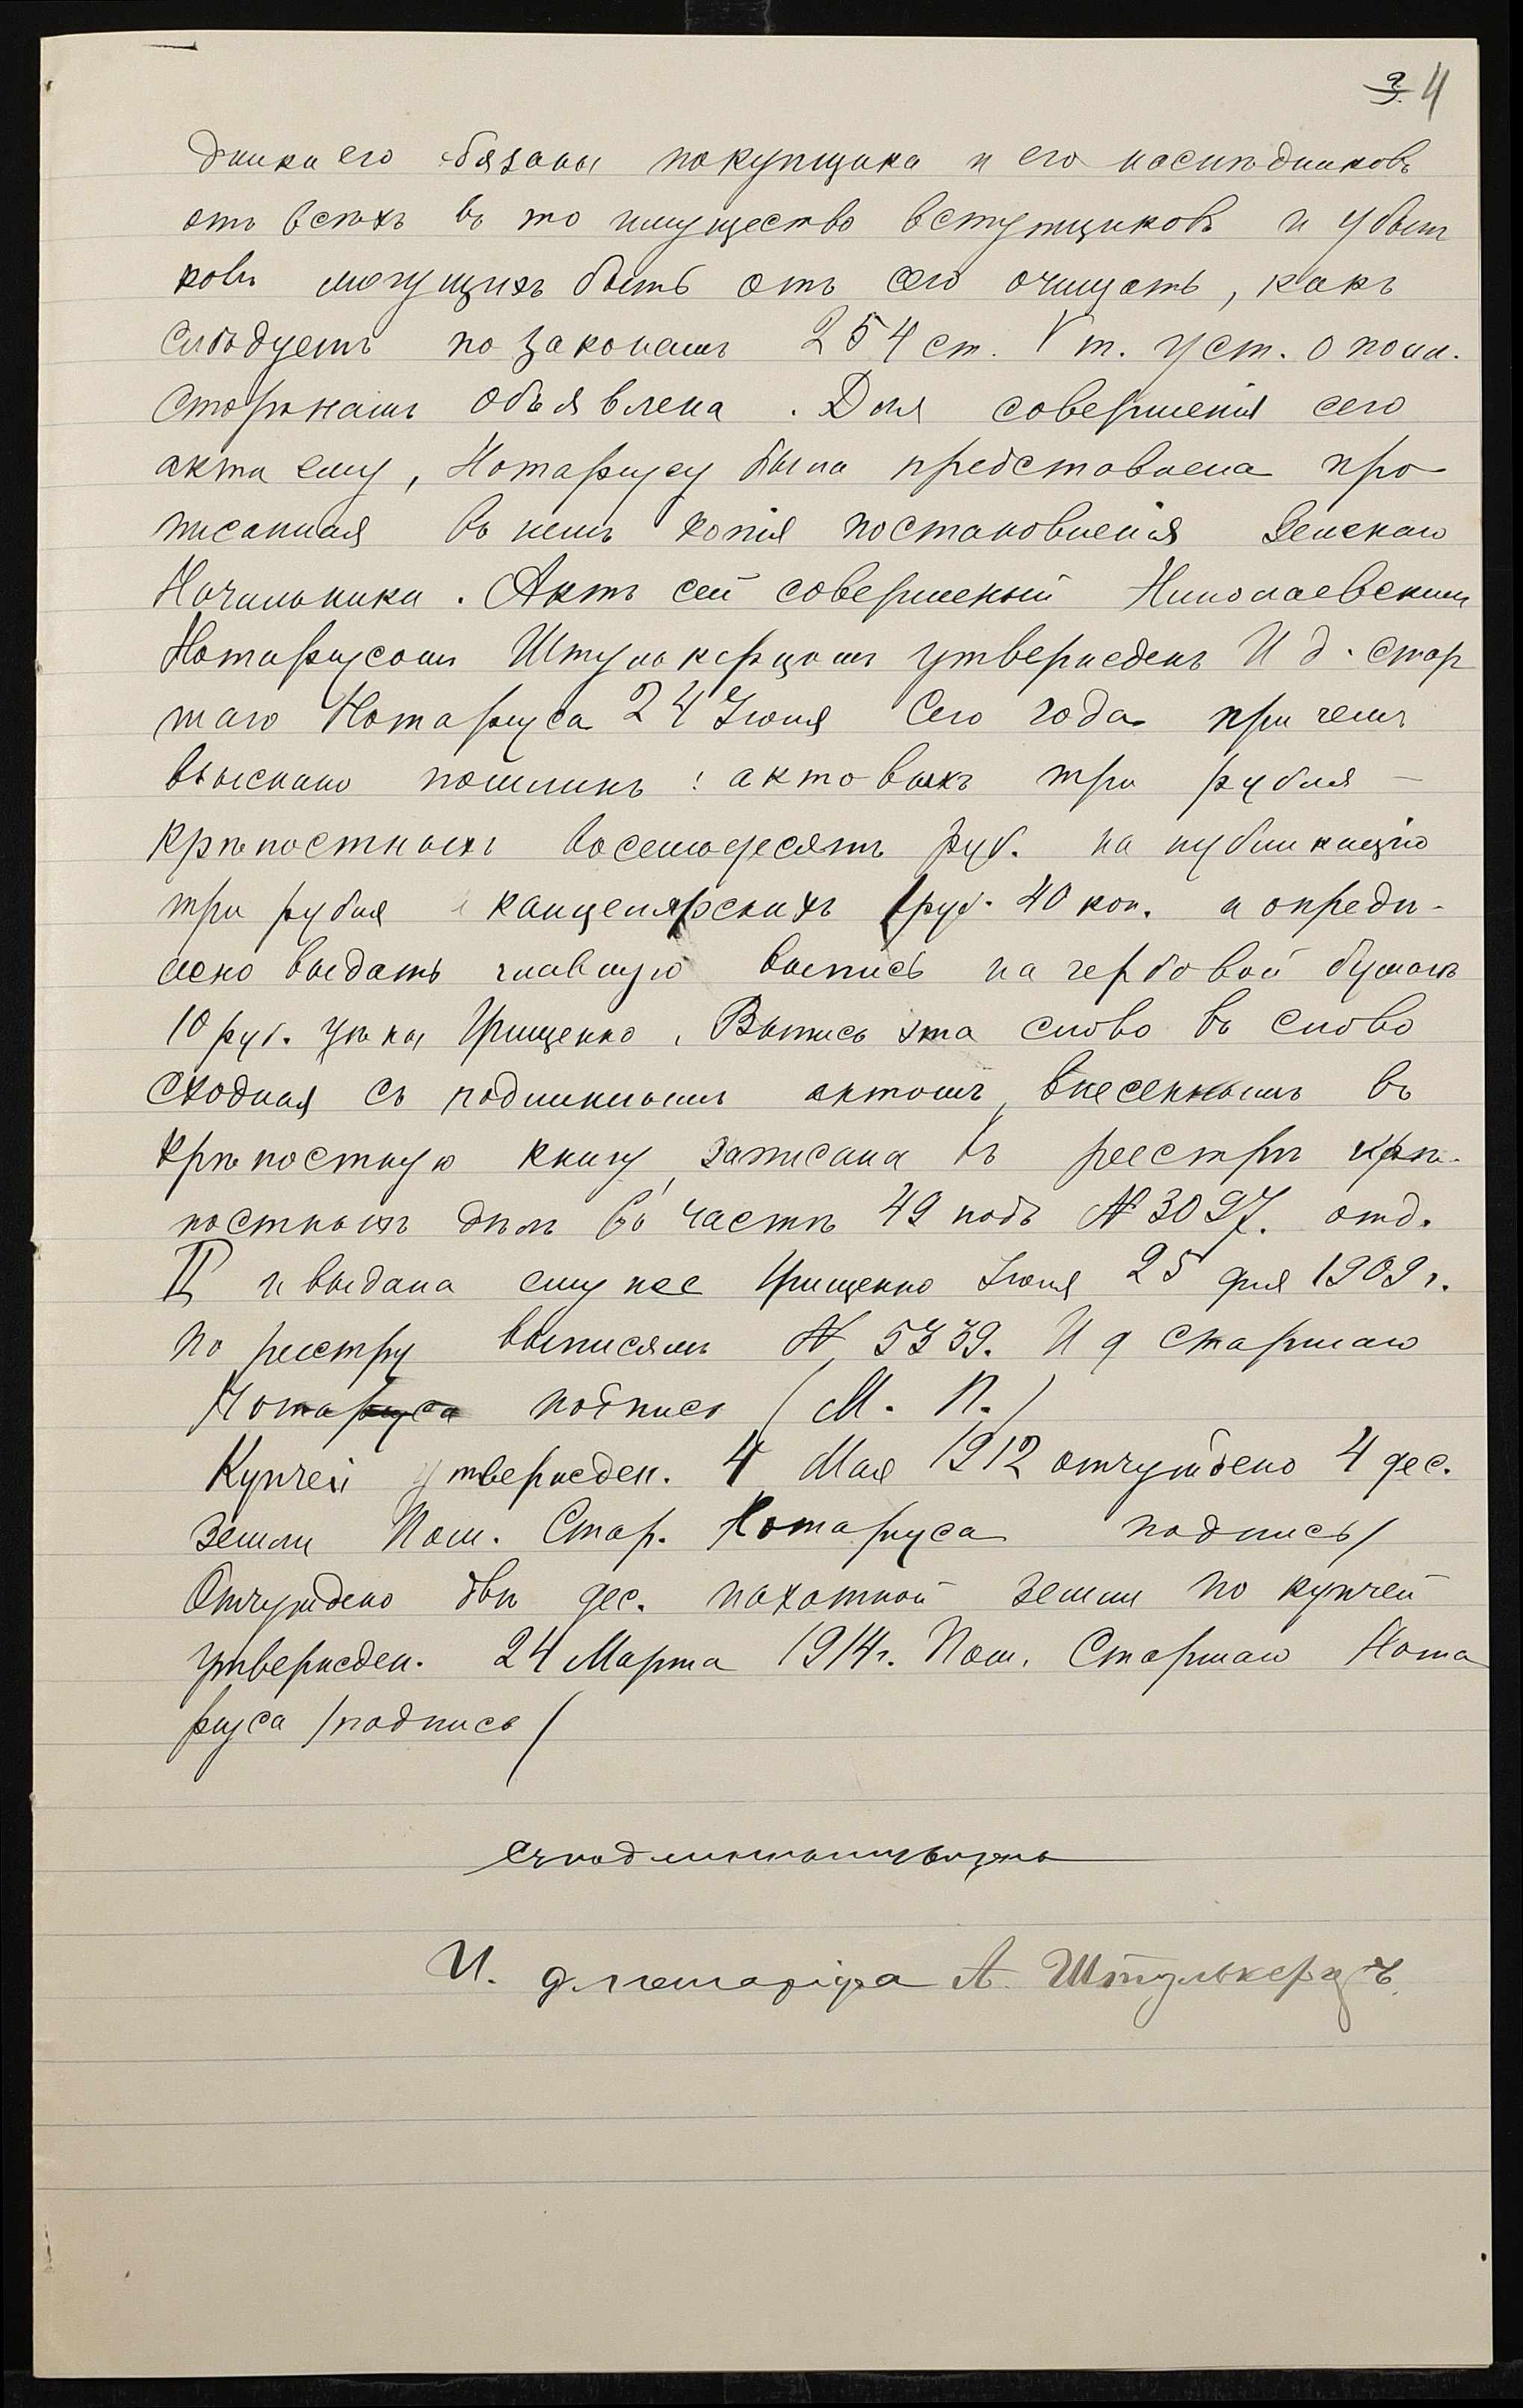 3. 4
дники его обязаны покупщика и его наслѣдниковъ
отъ всѣхъ въ то имущество вступщиковъ и убыт
ковъ могущихъ быть отъ сего очищать, какъ
слѣдуетъ по законамъ 254 ст. V т. уст. о пошл.
сторонамъ объявлена. Для совершенія сего
акта ему, Нотаріусу была представлена про
писанная въ немъ копія постановленія Земскаго
Начальника. Актъ сей совершеный Николаевскимъ
Нотаріусомъ Штулькерцомъ утвержденъ И д. Стар
шаго Нотаріуса 24 Іюня сего года при чемъ
взыскано пошлинъ: актовыхъ три рубля —
крѣпостныхъ восемьдесятъ руб. на публикацію
три рубля и канцелярскихъ 1 руб. 40 коп. и опредѣ-
лено выдать главную выпись на гербовой бумагѣ
10 руб. цѣны Грищенко. Выпись эта слово въ слово
сходная съ подлиннымъ актомъ, внесеннымъ въ
крѣпостную книгу, записана въ реестръ крѣ-
постныхъ дѣлъ въ части 49 подъ № 3097. отд.
II и выдана ему же Грищенко Іюня 25 дня 1909 г.
По реестру выписямъ № 5339. И д Старшаго
Нотаріуса подпись (М. П.)
Купчей утвержден. 4 Мая 1912 отчуждено 4 дес.
земли Пом. Стар. Нотаріуса подпись/
Отчуждено двѣ дес. пахотной земли по купчей
утвержден. 24 Марта 1914 г. Пом. Старшаго Нота
ріуса /подпись/
И. д. нотаріуса А. Штулькерцъ